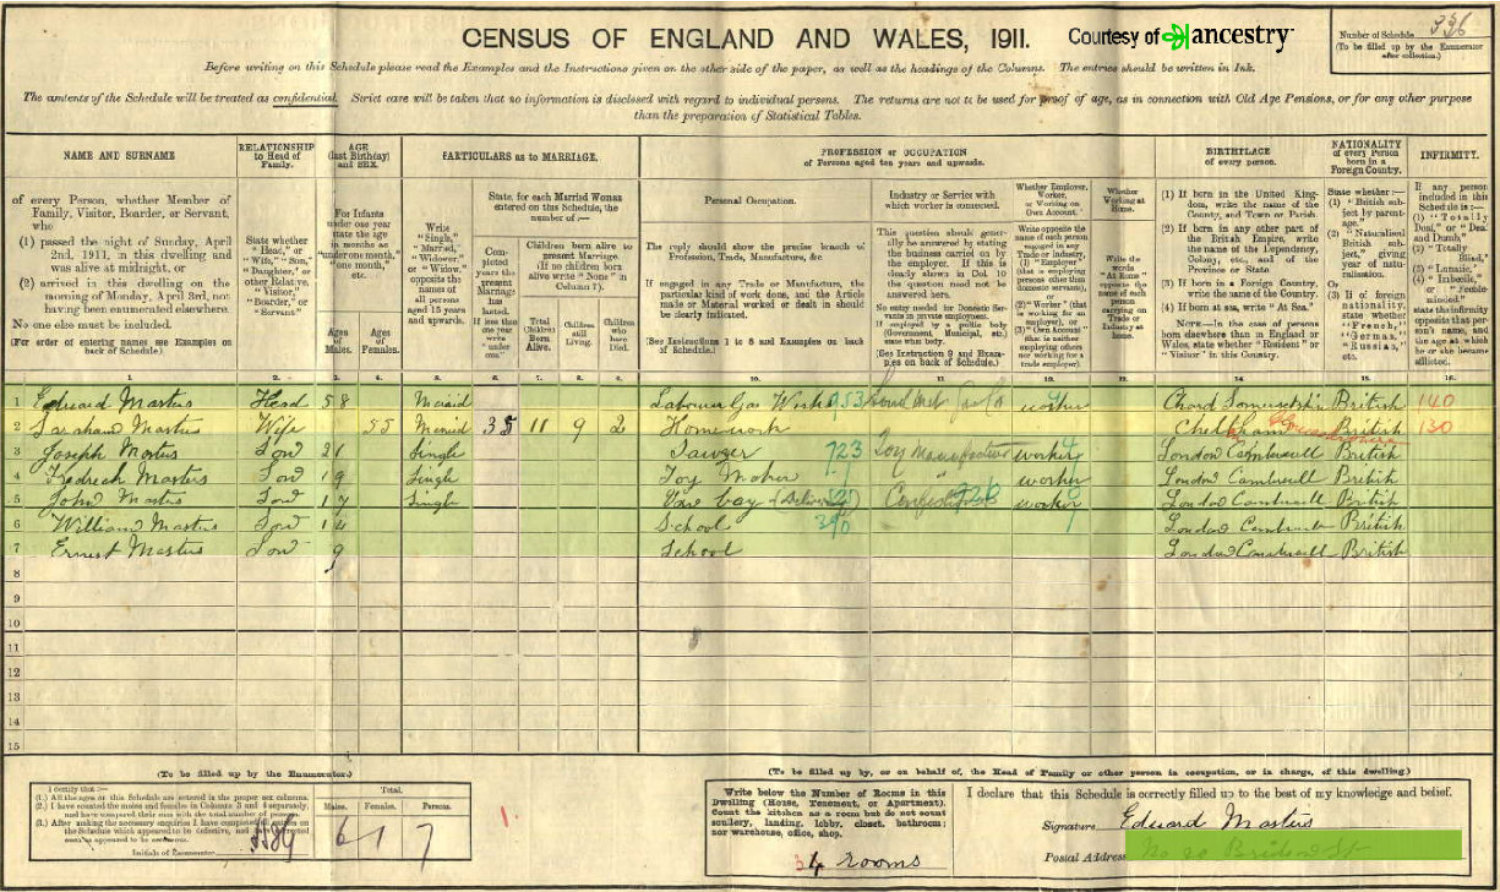 CENSUS OF ENGLAND AND WALES, 1911.
Courtesy of ancestry
Number of Schedule 336
(To be filled up by the Enumerator after collection.)
Before writing on this Schedule please read the Examples and the Instructions given on the other side of the paper, as well as the headings of the Columns. The entries should be written in Ink.
The contents of the Schedule will be treated as confidential. Strict care will be taken that no information is disclosed with regard to individual persons. The returns are not to be used for proof of age, as in connection with Old Age Pensions, or for any other purpose
than the preparation of Statistical Tables.
NAME AND SURNAME
of every Person, whether Member of
Family, Visitor, Boarder, or Servant,
who
(1) passed the night of Sunday, April
2nd, 1911, in this dwelling and
was alive at midnight, or
(2) arrived in this dwelling on the
morning of Monday, April 3rd, not
having been enumerated elsewhere.
No one else must be included.
(For order of entering names see Examples on
back of Schedule.)
RELATIONSHIP
to Head of
Family.
State whether
"Head," or
"Wife," "Son,"
"Daughter," or
other Relative,
"Visitor,"
"Boarder," or
"Servant"
AGE
(last Birthday)
and SEX.
For Infants
under one year
state the age
in months as
"under one month,"
"one month,"
etc.
Ages
of
Males.
Ages
of
Females.
PARTICULARS as to MARRIAGE.
Write
"Single,"
"Married,"
"Widower,"
or "Widow,"
opposite the
names of
all persons
aged 15 years
and upwards.
State, for each Married Woman
entered on this Schedule, the
number of:—
Completed
years the
present
Marriage
has
lasted.
If less than
one year
write
"under
one."
Children born alive to
present Marriage.
(If no children born
alive write "None" in
Column 7).
Total
Children
Born
Alive.
Children
still
Living.
Children
who
have
Died.
PROFESSION or OCCUPATION
of Persons aged ten years and upwards.
Personal Occupation.
The reply should show the precise branch of
Profession, Trade, Manufacture, &c.
If engaged in any Trade or Manufacture, the
particular kind of work done, and the Article
made or Material worked or dealt in should
be clearly indicated.
(See Instructions 1 to 8 and Examples on back
of Schedule.)
Industry or Service with
which worker is connected.
This question should gener-
ally be answered by stating
the business carried on by
the employer. If this is
clearly shown in Col. 10
the question need not be
answered here.
No entry needed for Domestic Ser-
vants in private employment.
If employed by a public body
(Government, Municipal, etc.)
state what body.
(See Instruction 9 and Exam-
ples on back of Schedule.)
Whether Employer,
Worker,
or Working on
Own Account.
Write opposite the
name of each person
engaged in any
Trade or Industry,
(1) "Employer"
(that is employing
persons other than
domestic servants),
or
(2) "Worker" (that
is working for an
employer), or
(3) "Own Account"
(that is neither
employing others
nor working for a
trade employer).
Whether
Working at
Home.
Write the
words
"At Home"
opposite the
name of each
person
carrying on
Trade or
Industry at
home.
BIRTHPLACE
of every person.
(1) If born in the United King-
dom, write the name of the
County, and Town or Parish.
(2) If born in any other part of
the British Empire, write
the name of the Dependency,
Colony, etc., and of the
Province or State.
(3) If born in a Foreign Country,
write the name of the Country.
(4) If born at sea, write "At Sea."
NOTE.—In the case of persons
born elsewhere than in England or
Wales, state whether "Resident" or
"Visitor" in this Country.
NATIONALITY
of every Person
born in a
Foreign Country.
State whether:—
(1) "British sub-
ject by parent-
age,"
(2) "Naturalised
British sub-
ject," giving
year of natu-
ralisation.
Or
(3) If of foreign
nationality,
state whether
"French,"
"German,"
"Russian,"
etc.
INFIRMITY.
If any person
included in this
Schedule is:—
(1) "Totally
Deaf," or "Deaf
and Dumb,"
(2) "Totally
Blind,"
(3) "Lunatic,"
(4) "Imbecile,"
or "Feeble-
minded,"
state the infirmity
opposite that per-
son's name, and
the age at which
he or she became
afflicted.
1. 2. 3. 4. 5. 6. 7. 8. 9. 10. 11. 12. 13. 14. 15. 16.
1 Edward Masters Head 58 Married Labourer Gas Works 953 worker Chard Somersetshire British 140
2 Sarah Masters Wife 55 Married 35 11 9 2 Homework Cheltenham British 130
3 Joseph Masters Son 21 Single Sawyer 723 Toy Manufacture worker London Camberwell British
4 Fredrech Masters Son 19 Single Toy Maker worker London Camberwell British
5 John Masters Son 17 Single Van boy worker London Camberwell British
6 William Masters Son 14 School 390 London Camberwell British
7 Ernest Masters Son 9 School London Camberwell British
8
9
10
11
12
13
14
15
(To be filled up by the Enumerator.)
I certify that:—
(1.) All the ages on this Schedule are entered in the proper sex columns.
(2.) I have counted the males and females in Columns 3 and 4 separately,
and have compared their sum with the total number of persons.
(3.) After making the necessary enquiries I have completed all entries on
the Schedule which appeared to be defective, and have corrected
such as appeared to be erroneous.
Initials of Enumerator
Total.
Males. Females. Persons.
6 1 7
(To be filled up by, or on behalf of, the Head of Family or other person in occupation, or in charge, of this dwelling.)
Write below the Number of Rooms in this
Dwelling (House, Tenement, or Apartment).
Count the kitchen as a room but do not count
scullery, landing, lobby, closet, bathroom;
nor warehouse, office, shop.
4 rooms
I declare that this Schedule is correctly filled up to the best of my knowledge and belief.
Signature Edward Masters
Postal Address